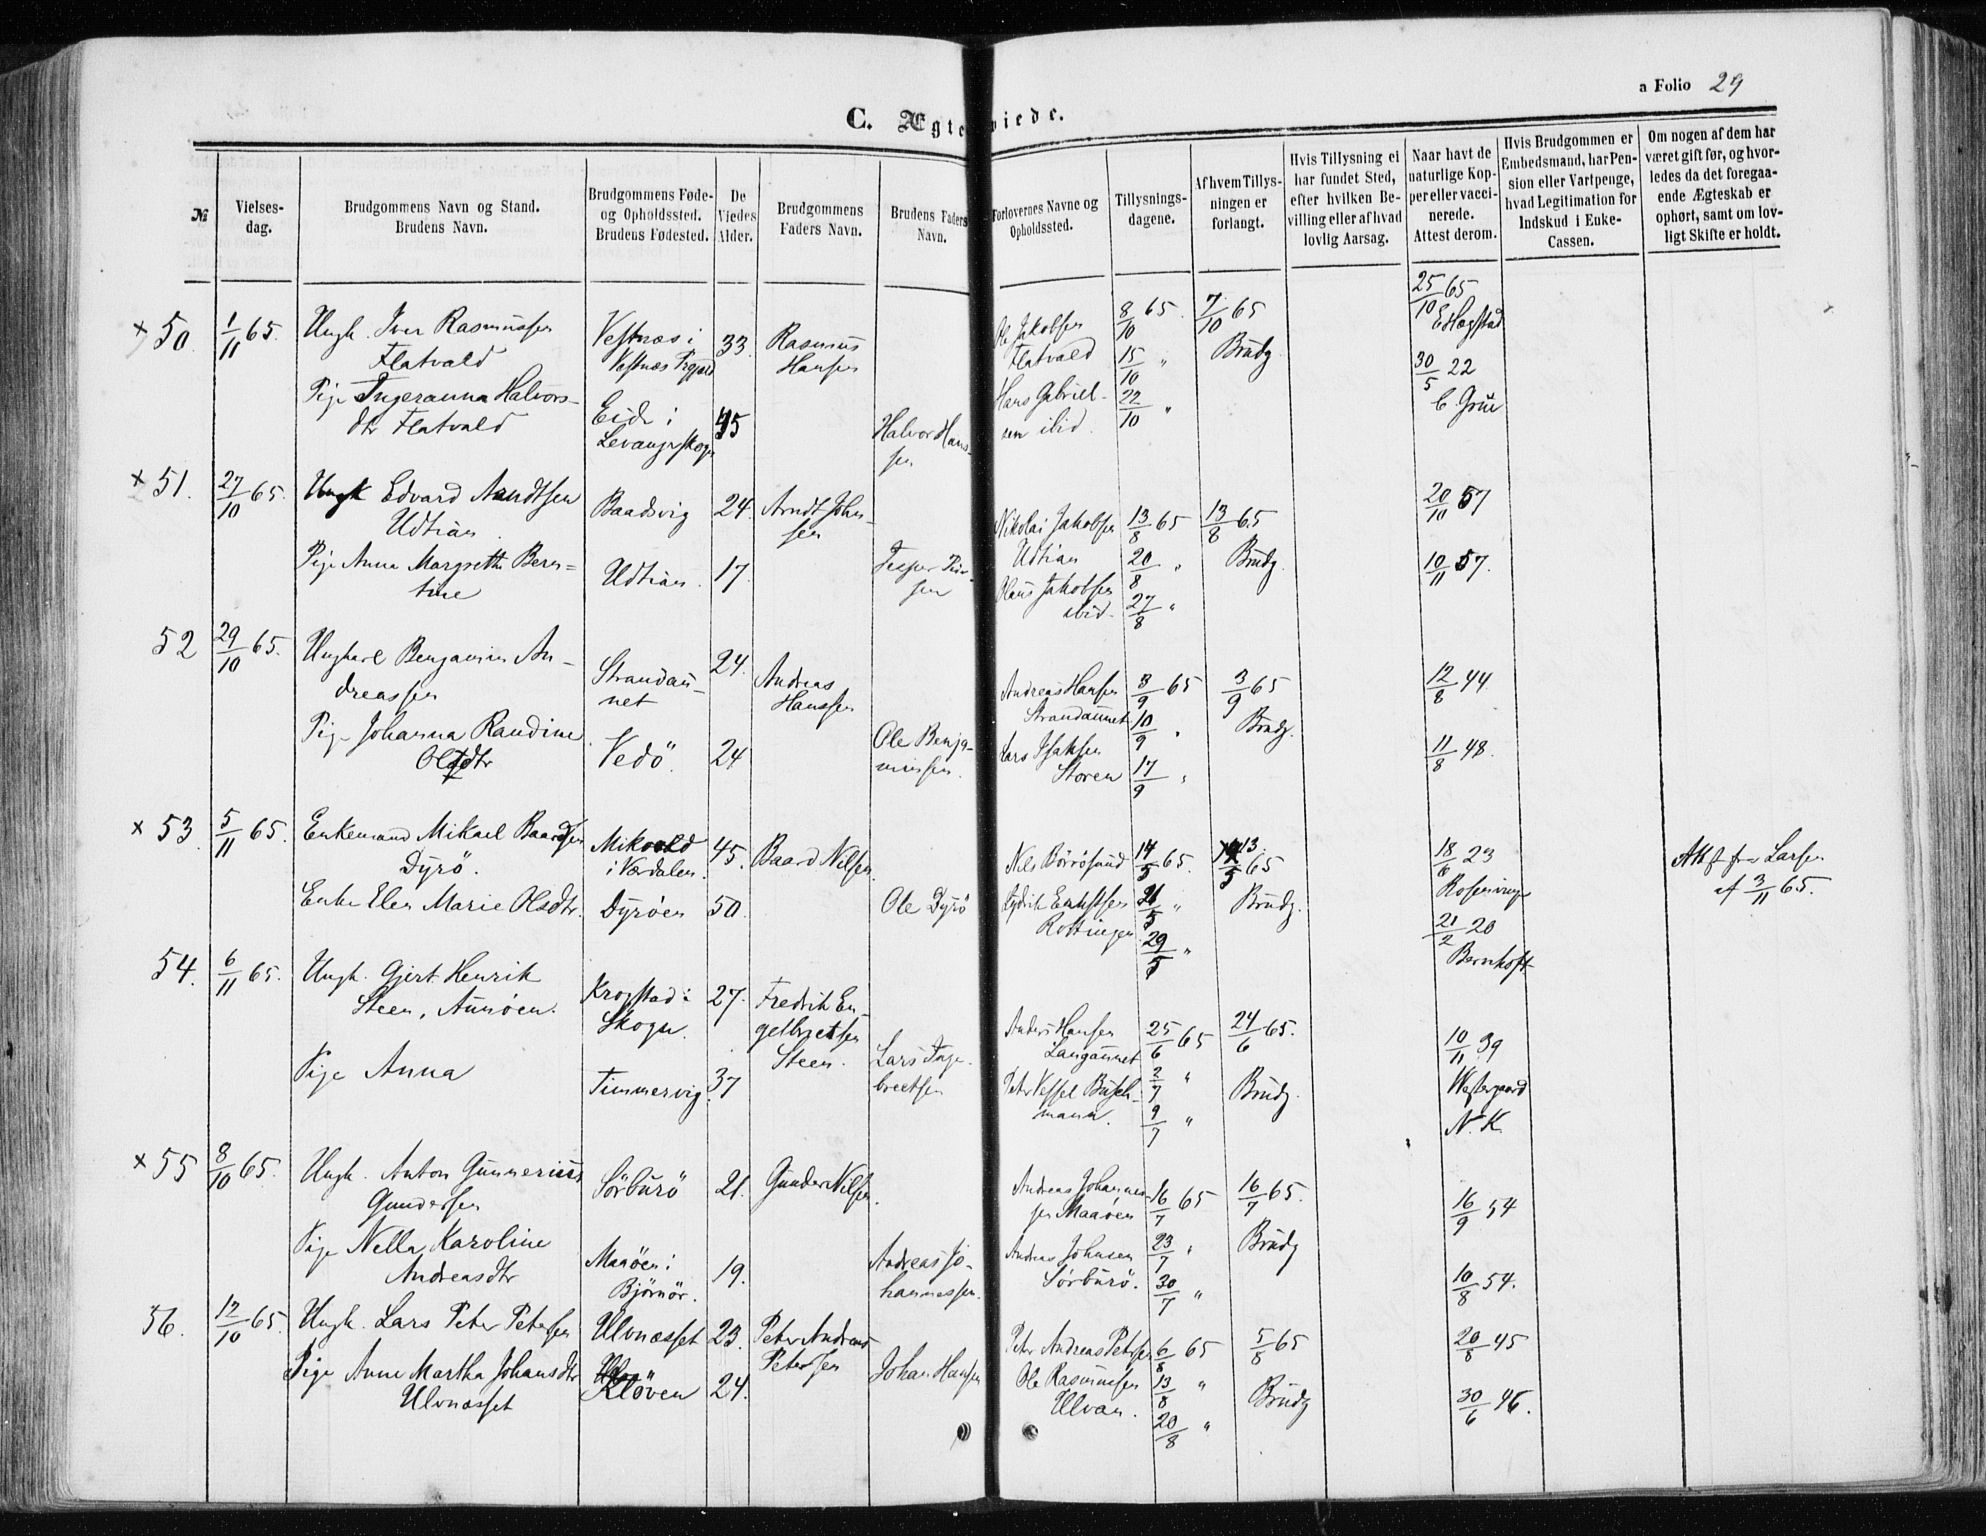 a Folio 29
C. Ægteviede.
№
Vielses-
dag.
Brudgommens Navn og Stand.
Brudens Navn.
Brudgommens Føde-
og Opholdssted.
Brudens Fødested.
De
Viedes
Alder.
Brudgommens
Faders Navn.
Brudens Faders
Navn.
Forlovernes Navne og
Opholdssted.
Tillysnings-
dagene.
Af hvem Tillys-
ningen er
forlangt.
Hvis Tillysning ei
har fundet Sted,
efter hvilken Be-
villing eller af hvad
lovlig Aarsag.
Naar havt de
naturlige Kop-
per eller vacci-
nerede.
Attest derom.
Hvis Brudgommen er
Embedsmand, har Pen-
sion eller Vartpenge,
hvad Legitimation for
Indskud i Enke-
Cassen.
Om nogen af dem har
været gift før, og hvor-
ledes da det foregaa-
ende Ægteskab er
ophørt, samt om lov-
ligt Skifte er holdt.
× 50. 1/11 65.
Ungk. Iver Rasmussen
Flatvald
Pige Ingeranna Halvors-
dtr Flatvald
Vestnæs i
Vestnæs Prgjæld
Eide i
Levanger skogn
33
45
Rasmus
Hansen
Halvor Hans-
sen
Ole Jakobsen
Flatvald
Hans Gabriel-
sen ibid.
8/10 65.
15/10 "
22/10 "
7/10 65
Brudg.
25/10 65
E Hagstad
30/5 22
C. Grüe
× 51. 27/10 65.
Ungk Edvard Arndtsen
Udtian.
Pige Anna Margrethe Bern-
tine
Baadsvig
Udtian.
24.
17.
Arndt Johan-
sen
Jesper
sen
Nikolai Jakobsen
Udtian
Olaus Jakobsen
ibid.
13/8 65
20/8 "
27/8 "
13/8 65
Brudg.
20/10 57
10/11 57.
52 29/10 65.
Ungkarl Benjamin An-
dreassen
Pige Johanna Randine
Olsdtr
Strandau-
net
Vedö.
24.
24
Andreas
Hanssen
Ole Benja-
minsen.
Andreas Hansen
Strandaunet
Lars Isaksen
Storen
3/9 65
10/9 "
17/9 "
3/9 65
Brudg.
12/8 44
11/8 48.
× 53. 5/11 65.
Enkemand Mikael Baardsen
Dyrö.
Enke Elen Marie Olsdtr.
Mikvold
i Værdalen.
Dyröen
45.
50.
Baard Nilsen.
Ole Dyrö
Nils Börrösund
Ernstsen
Rottingen
14/5 65.
21/5 "
29/5 "
13/5 65
Brudg.
18/6 23
Rosenvinge
21/2 20
Bernhoft
Larsen
af 3/11 65.
54. 6/11 65.
Ungk. Gjert Henrik
Steen, Aunöen.
Pige Anna
Krogstad i
Skogn.
Timmervig.
27.
37
Fredrik En-
gelbretsen
Steen.
Lars Inge-
bretsen
Anders Hansen
Langaunet
Peter Vessel Busch-
mann.
25/6 65
2/7 "
9/7 "
24/6 65.
Brudg.
10/11 39
Westergaard
N. K.
× 55 8/10 65.
Ungk. Anton Gunnerius
Gundersen
Pige Nella Karoline
Andreasdtr
Sörburö
Maaöen i
Björnör.
21.
19.
Gunder Nilsen.
Andreas Jo-
hannessen.
Andreas Johannes-
sen Maaöen
Andreas Johnsen
Sörburö.
16/7 65
23/7 "
30/7 "
16/7 65.
Brudg
16/9 54
10/8 54.
56. 12/10 65.
Ungk. Lars Peter Petersen
Pige Anne Martha Johansdtr
Ulvnæsset
Ulvnæsset
Klöven
23.
24.
Peter Andreas
Petersen
Johan Hansen
Peter Andreas Petersen
Ole Rasmussen
Ulvan.
6/8 65
13/8 "
20/8 "
5/8 65
Brudg
20/8 45
30/6 46.